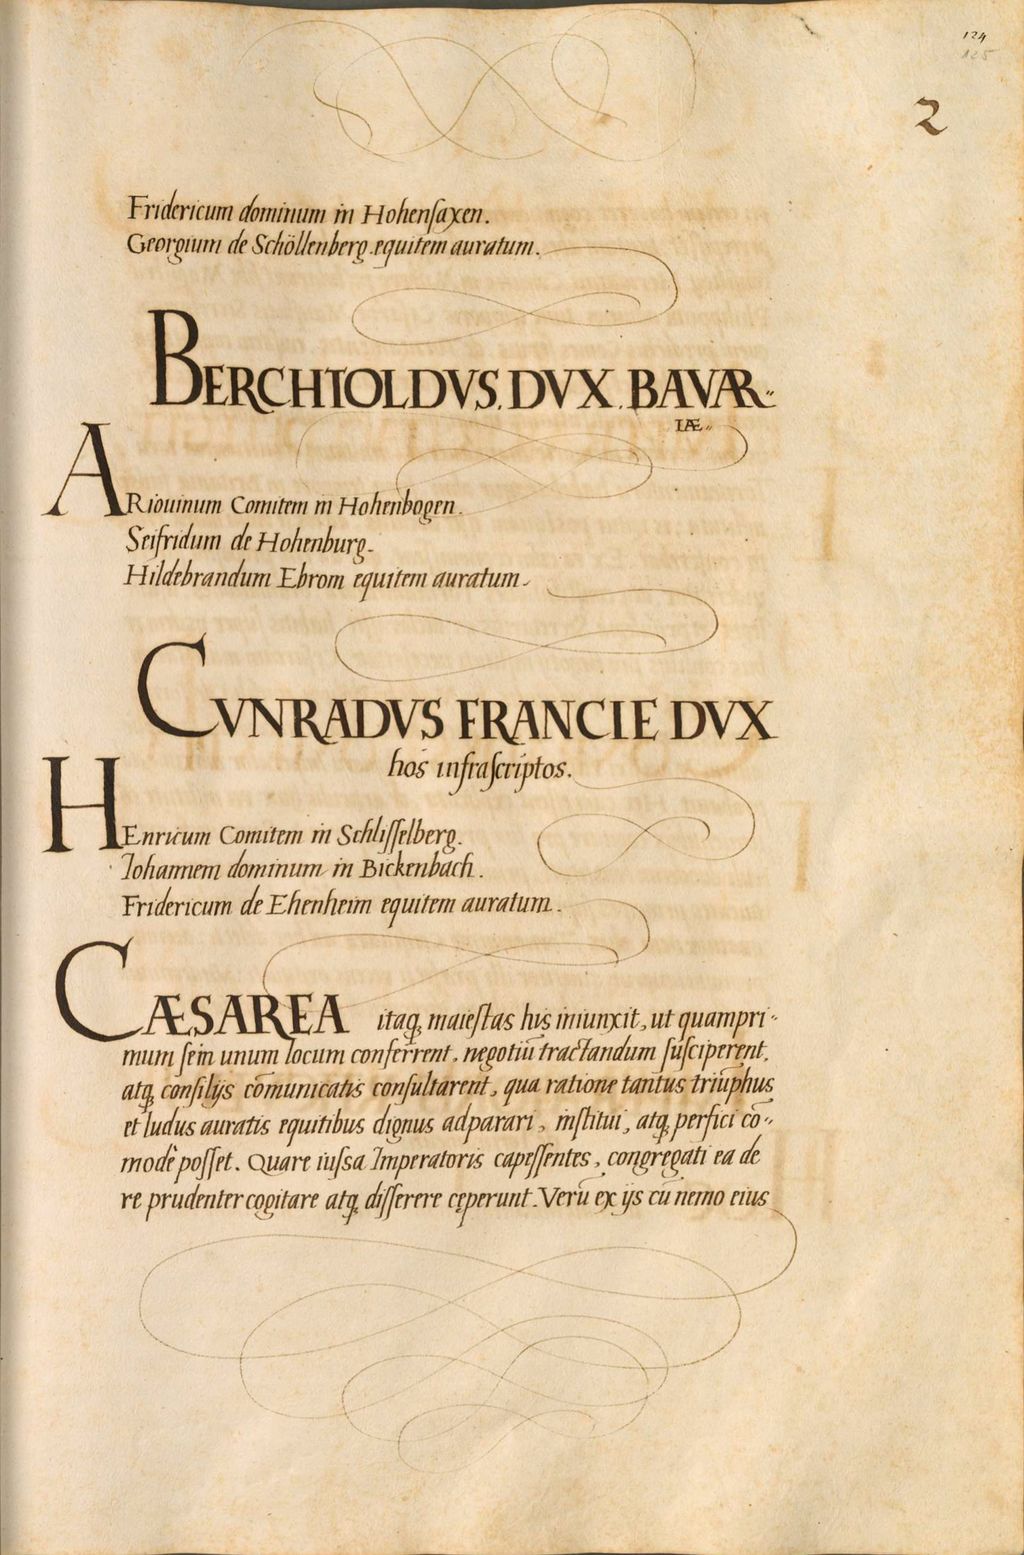 124
125
2
Fridericum dominum in Hohenſaxen.
Georgium de Schöllenberg equitem auratum.
BERCHTOLDVS. DVX. BAVAR⸗
IÆ⸗
ARiouinum Comitem in Hohenbogen.
Seifridum de Hohenburg.
Hildebrandum Ebrom equitem auratum.
CVNRADVS FRANCIE DVX
hos infraſcriptos.
HEnricum Comitem in Schliſſelberg.
Johannem dominum in Bickenbach.
Fridericum de Ehenheim equitem auratum.
CÆSAREA itaq₃ maieſtas his iniunxit, ut quampri⸗
mum ſein unum locum conferrent, negotiū tractandum ſuſciperent,
atq₃ conſilijs cōmunicatis conſultarent, qua ratione tantus triūphus
et ludus auratis equitibus dignus adparari, inſtitui, atq₃ perfici cō⸗
modè poſſet. Quare iuſsa Imperatoris capeſſentes, congregati ea de
re prudenter cogitare atq₃ diſſerere cęperunt. Verū ex ijs cū nemo eius